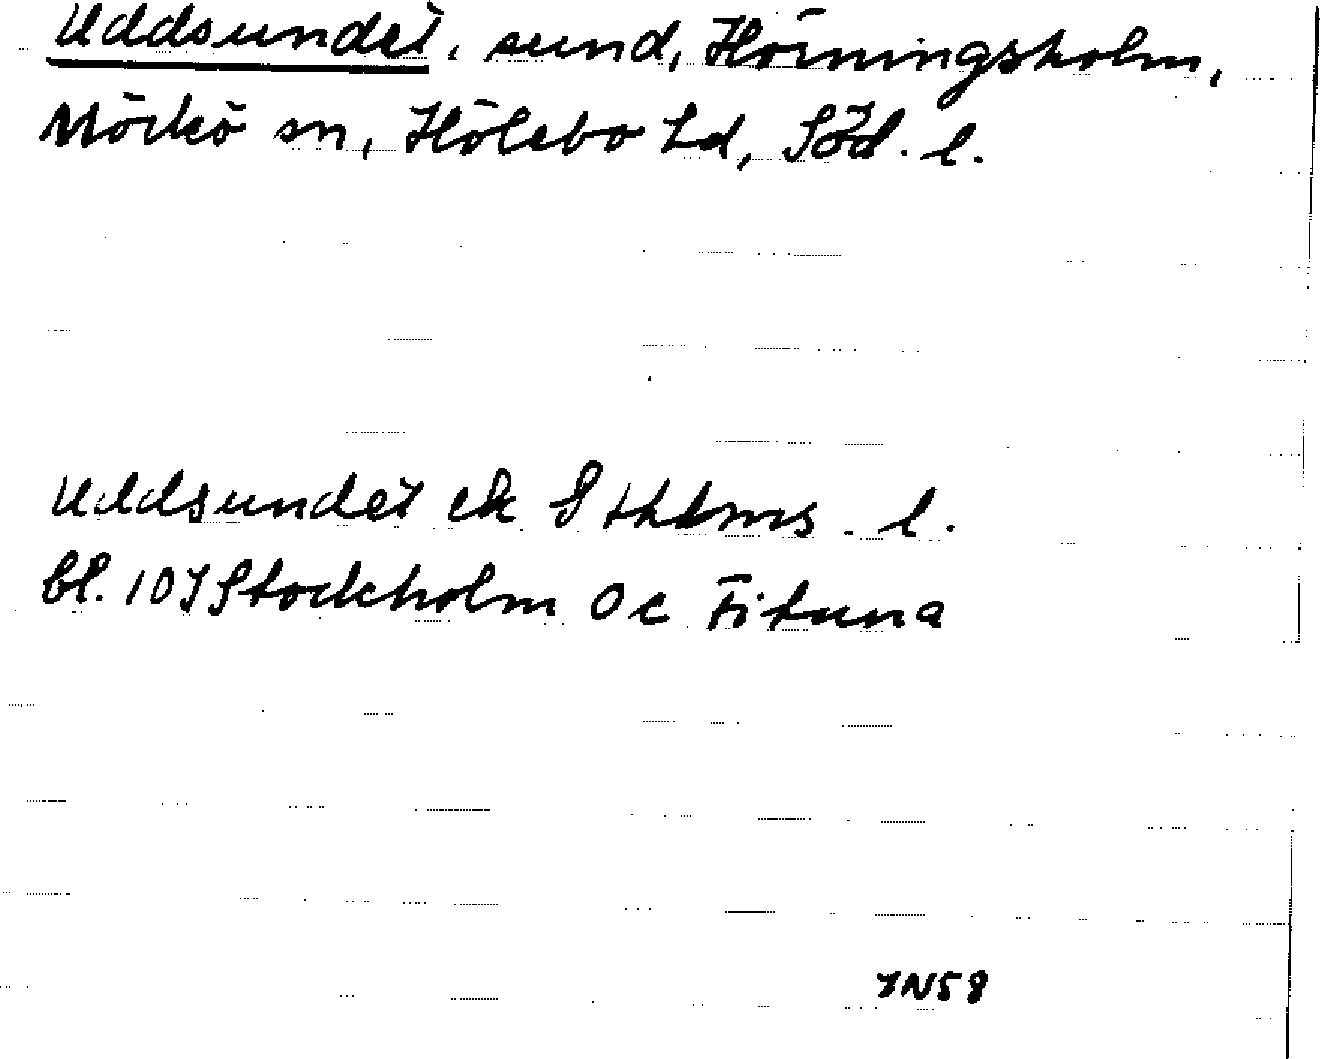 Uddsundet, sund, Hörningsholm,
Mörkö sn, Hölebo hd, Söd. l.
Uddsundet ek Sthlms. l.
bl. 10I Stockholm 0c Fituna
IN58